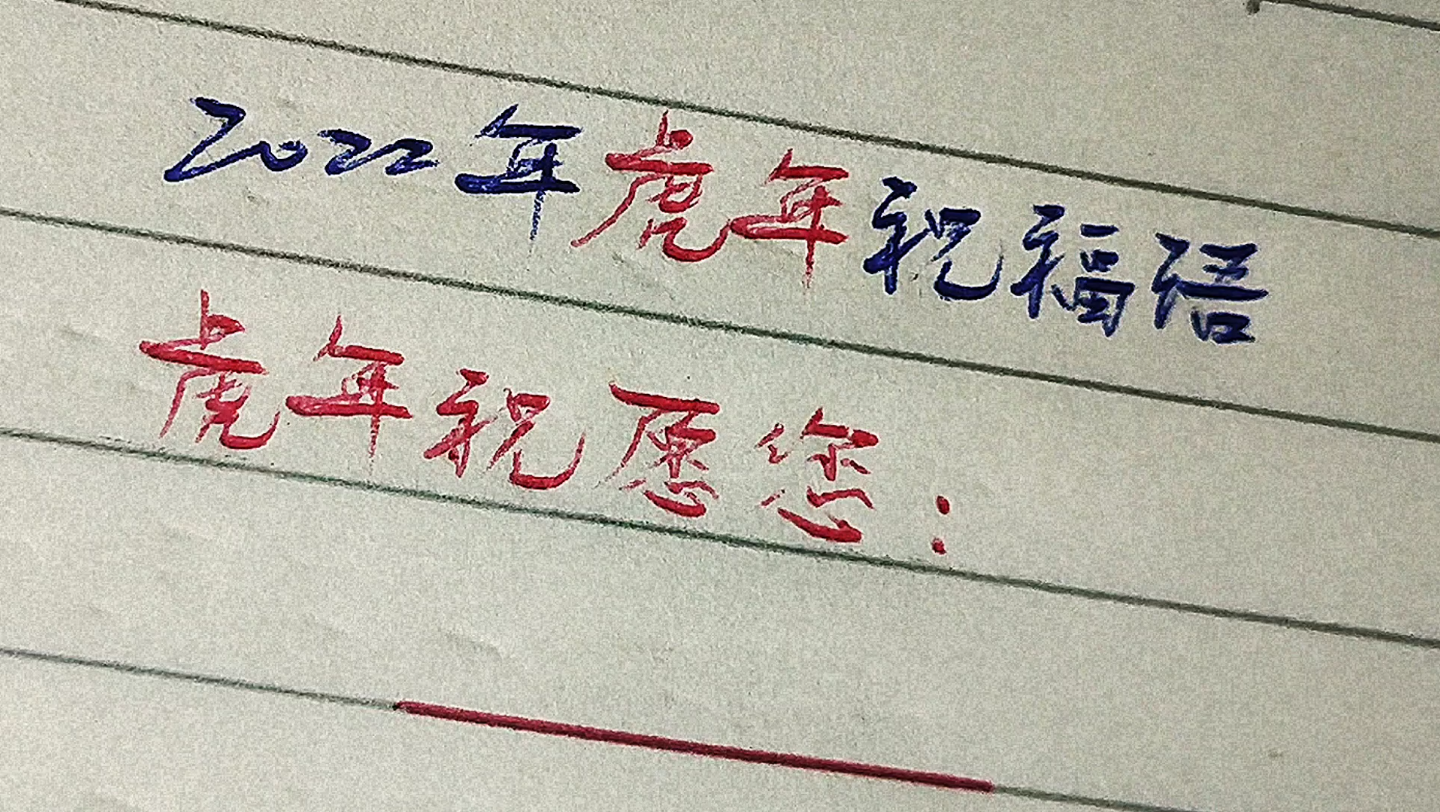 2022年虎年祝福语
虎年祝愿您：